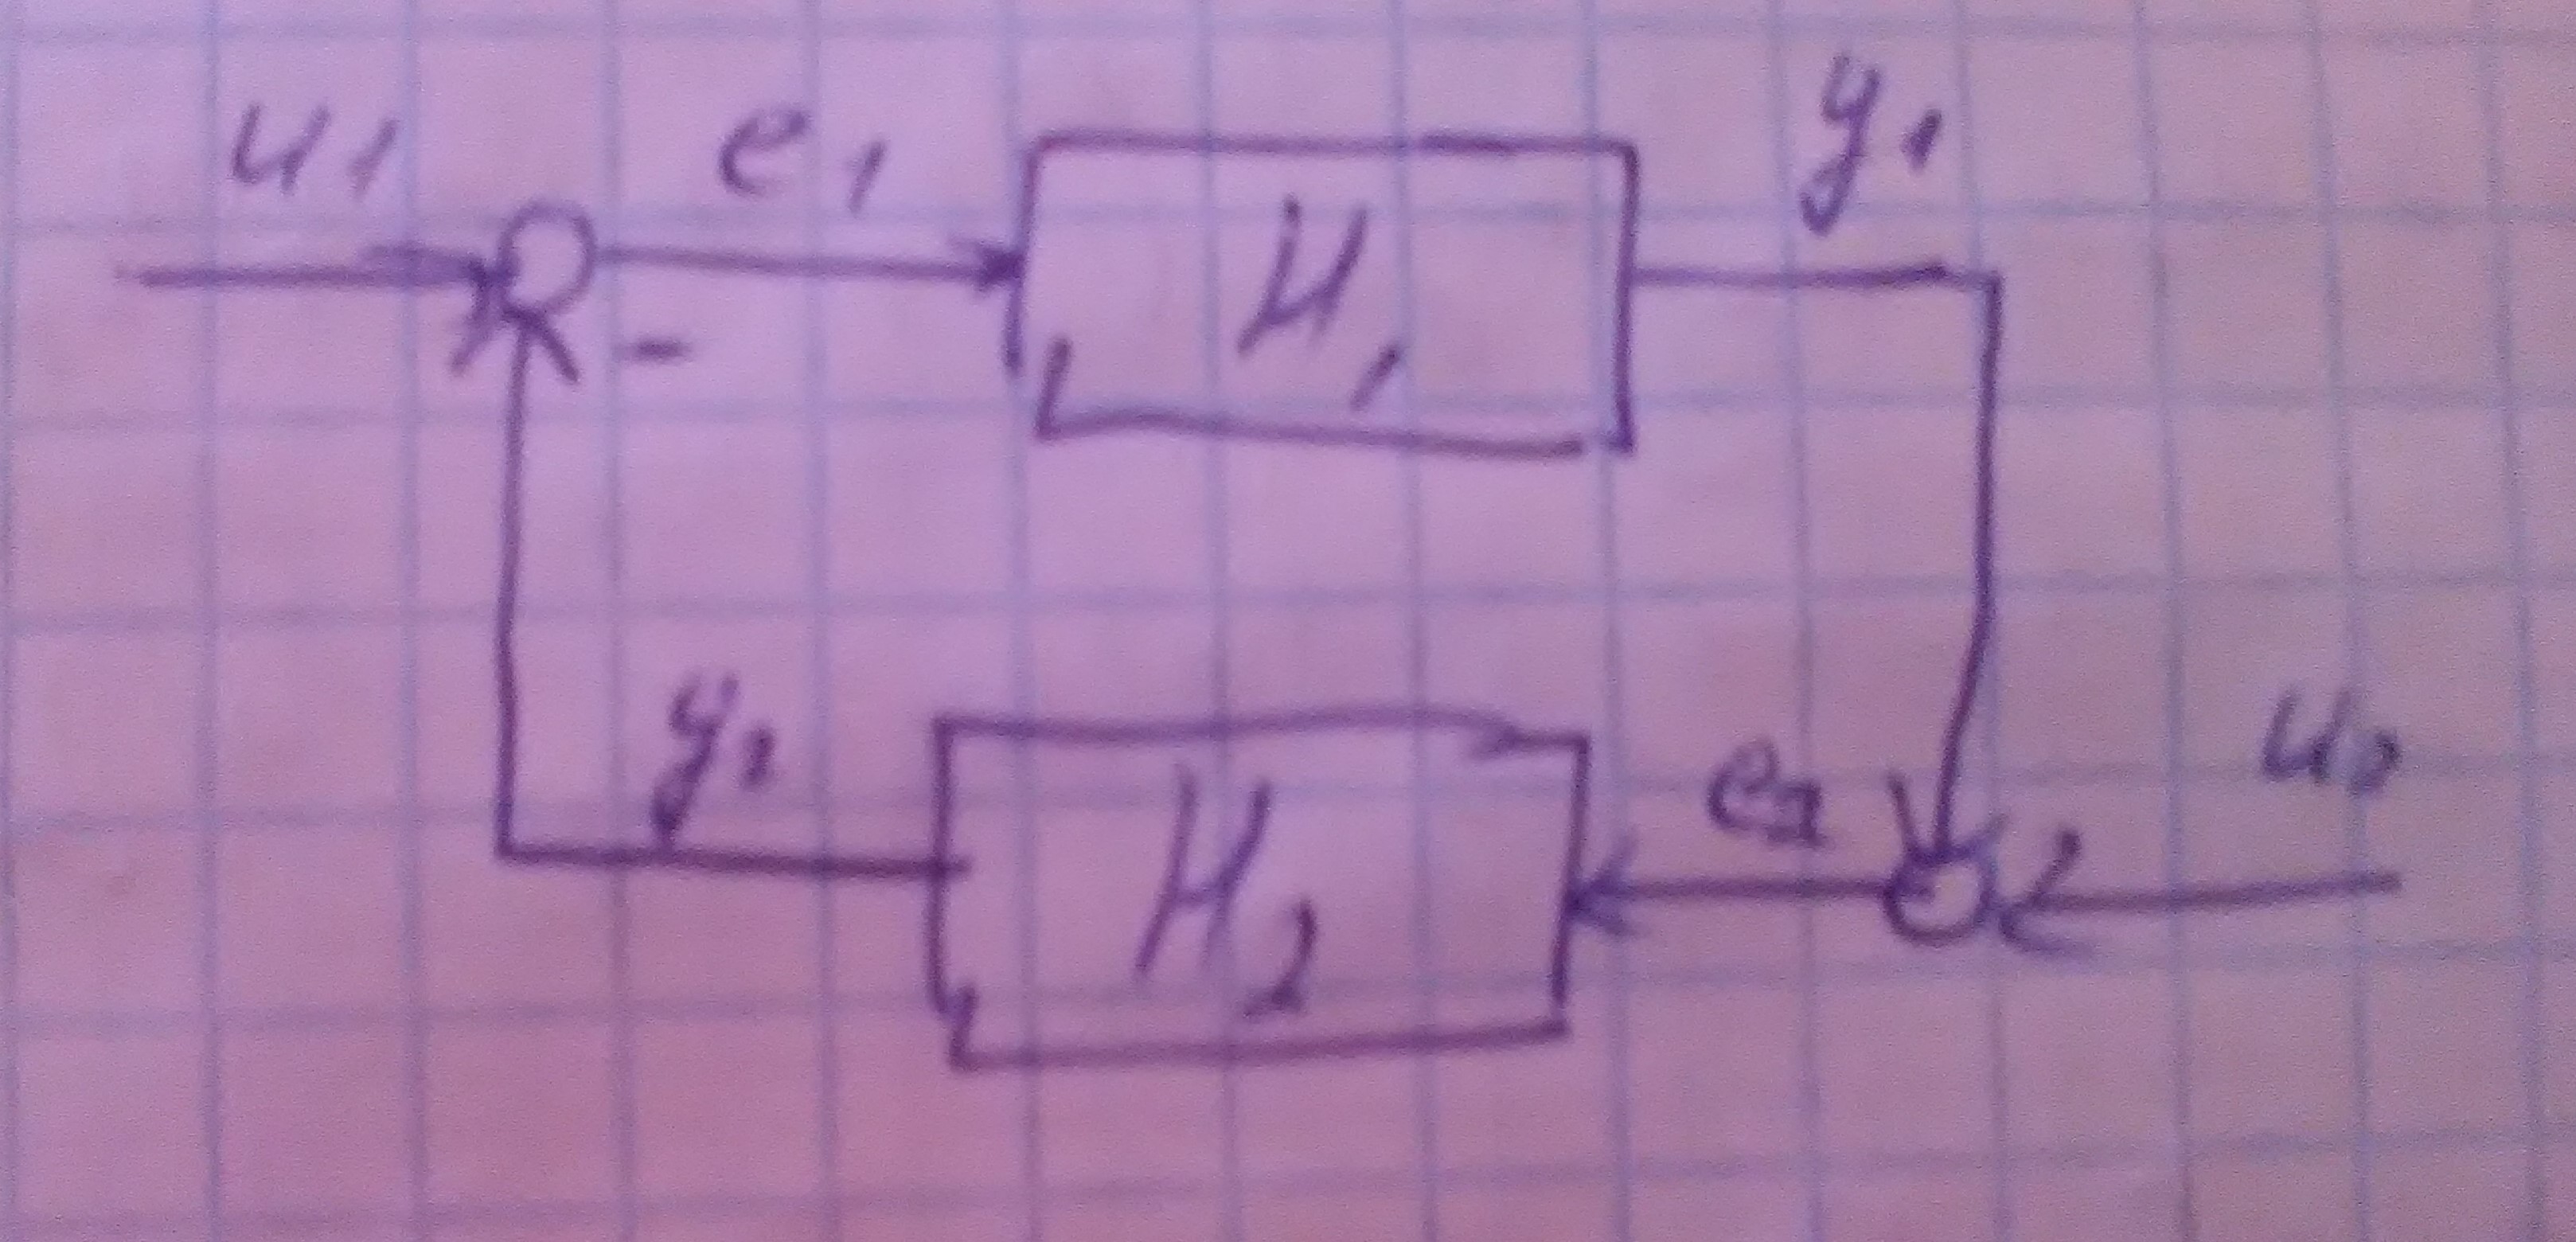 u1 e1 y1
-
H1
y2 e2 u2
H2